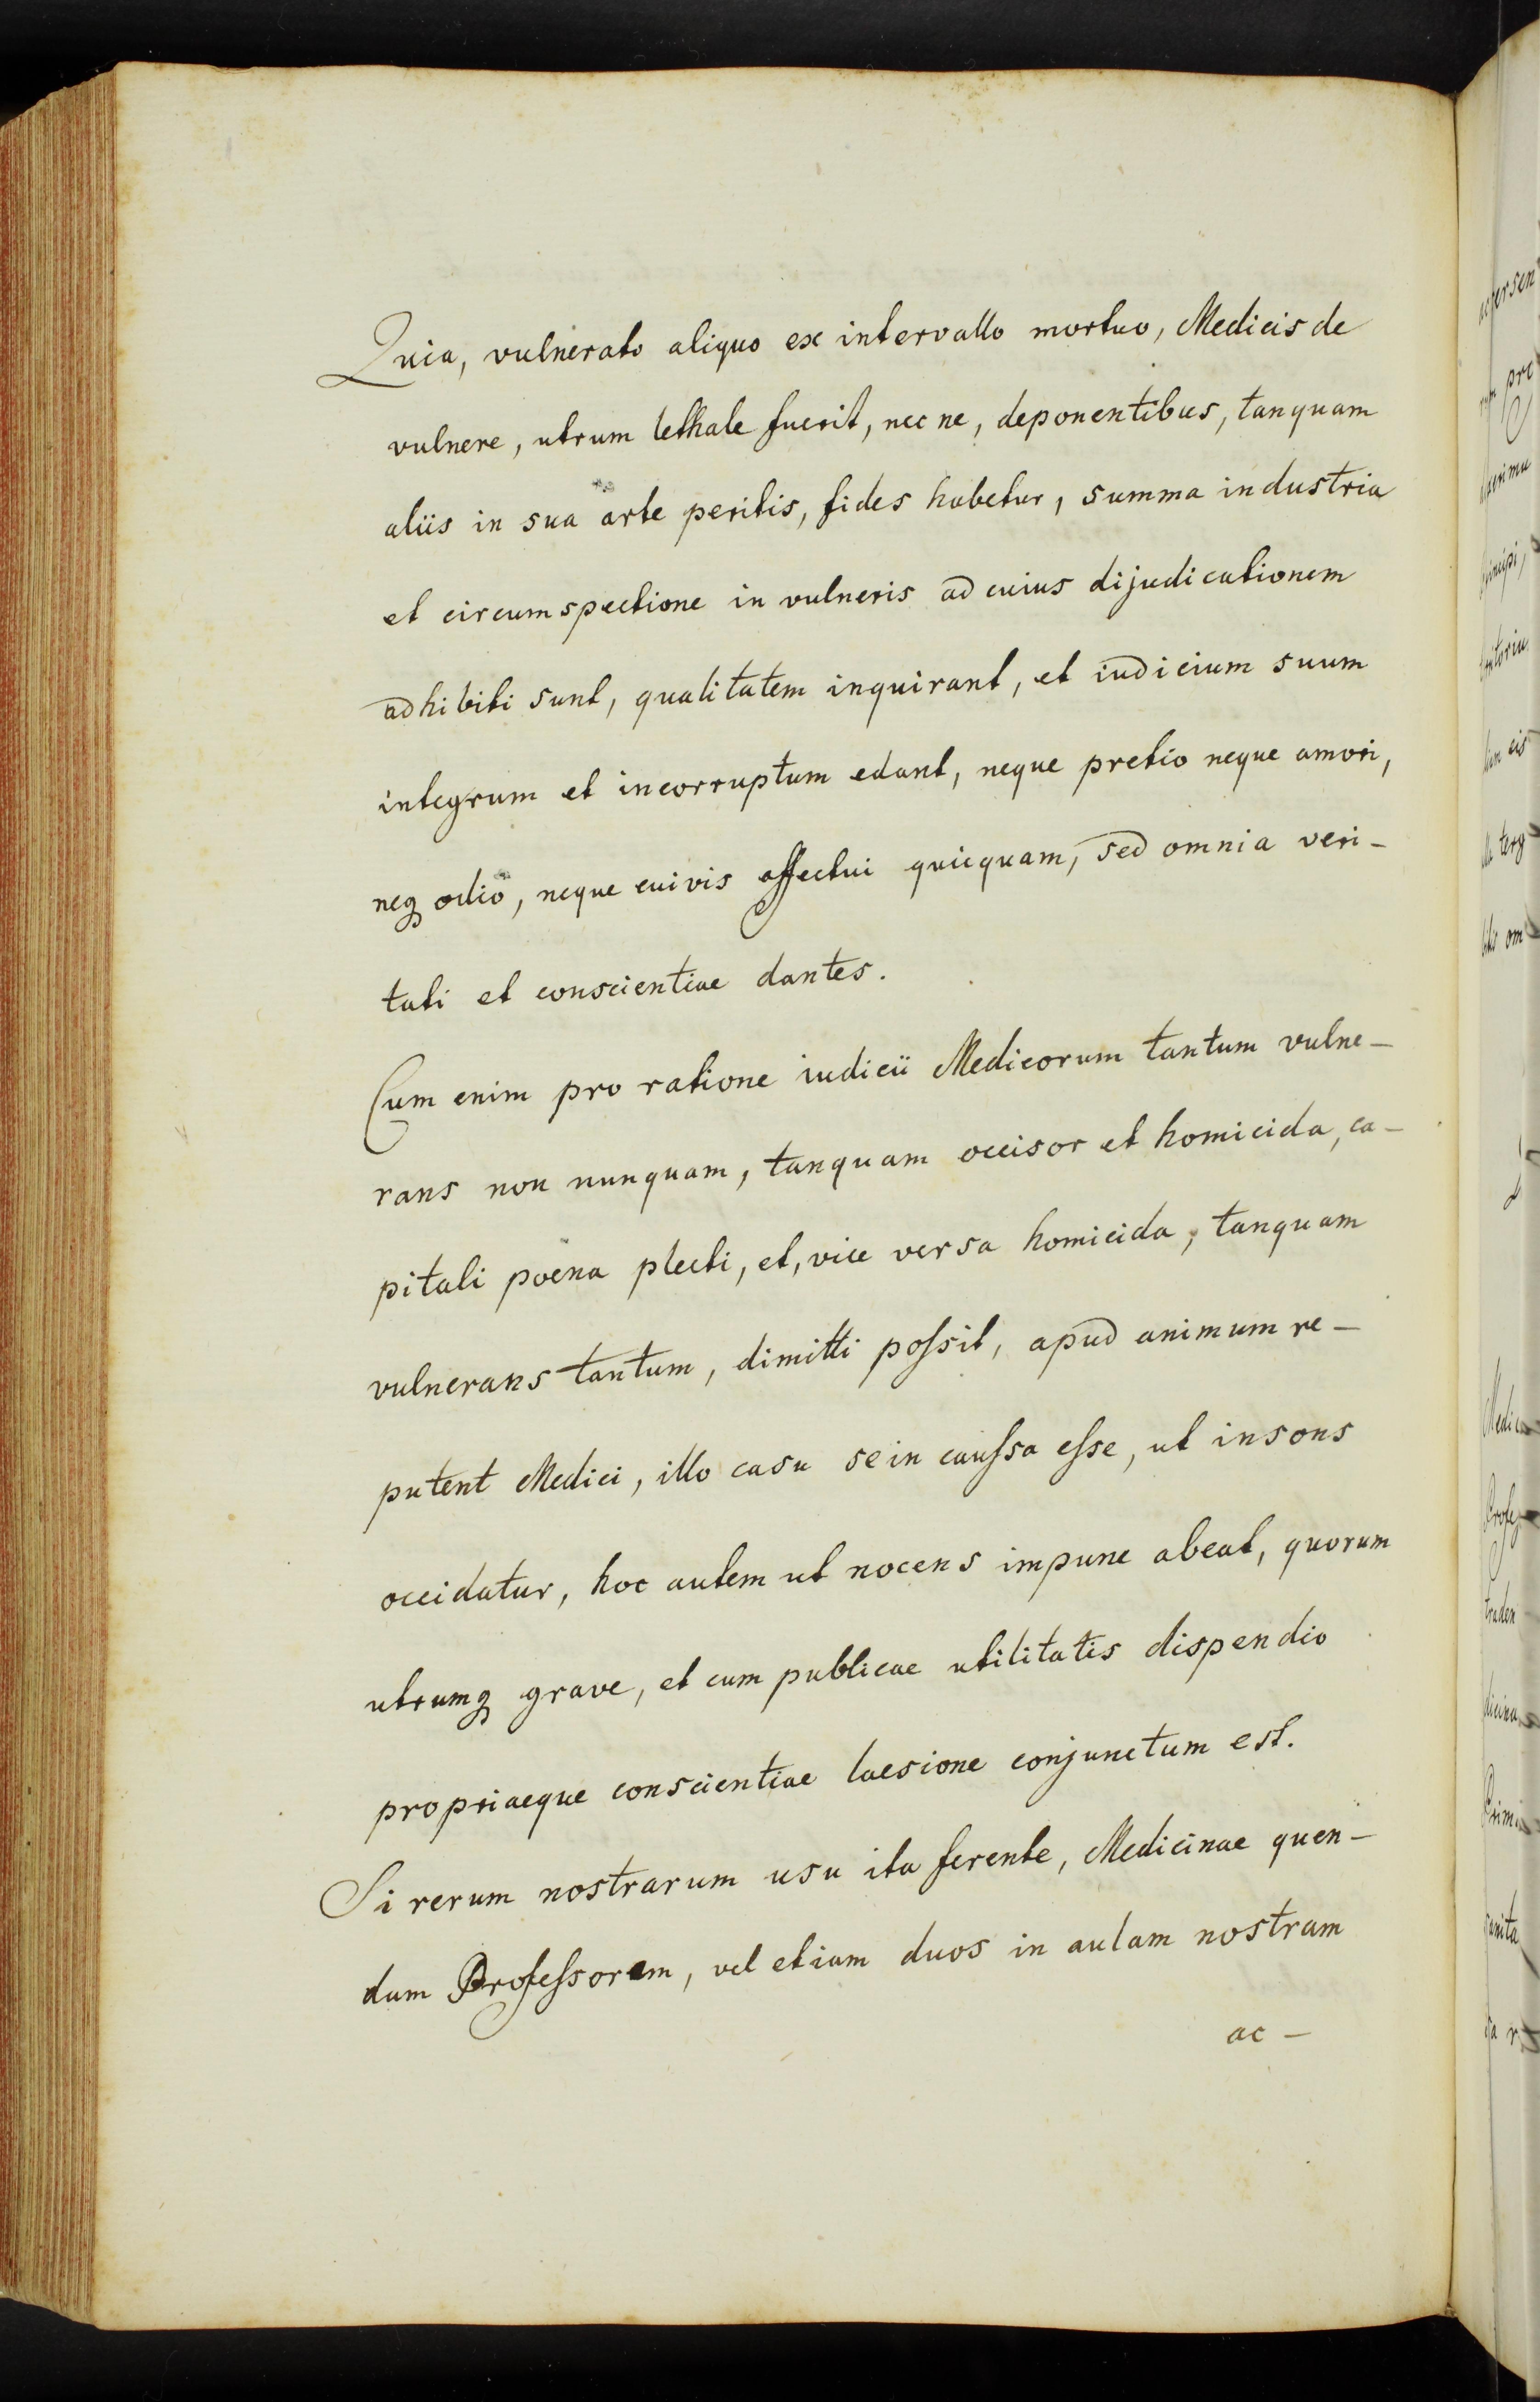 Quia, vulnerato aliquo ex intervallo mortuo, Medicis de
vulnere, utrum lethale fuerit, nec ne, deponentibus, tanquam
aliis in sua arte peritis, fides habetur, summa industria
et circumspectione in vulneris ad cuius dijudicationem
adhibiti sunt, qualitatem inquirant, et iudicium suum
integrum et incorruptum edant, neque pretio neque amori,
neqꝫ odio, neque cuivis affectui quicquam, sed omnia veri-
tati et conscientiae dantes.
Cum enim pro ratione iudicii Medicorum tantum vulne-
rans non nunquam, tanquam occisor et homicida, ca-
pitali poena plecti, et, vice versa homicida, tanquam
vulnerans tantum, dimitti poſsit, apud animum re-
putent Medici, illo casu se in cauſsa eſse, ut insons
occidatur, hoc autem ut nocens impune abeat, quorum
utrumqꝫ grave, et cum publicae utilitatis dispendio
propriaeque conscientiae laesione conjunctum est.
Si rerum nostrarum usu ita ferente, Medicinae quen-
dam Profeſsorem, vel etiam duos in aulam nostram
ac-